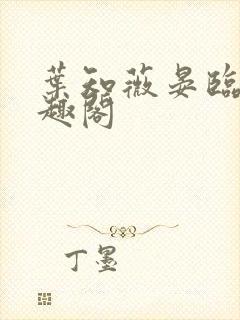 葉知薇晏臨
趣閣
丁墨